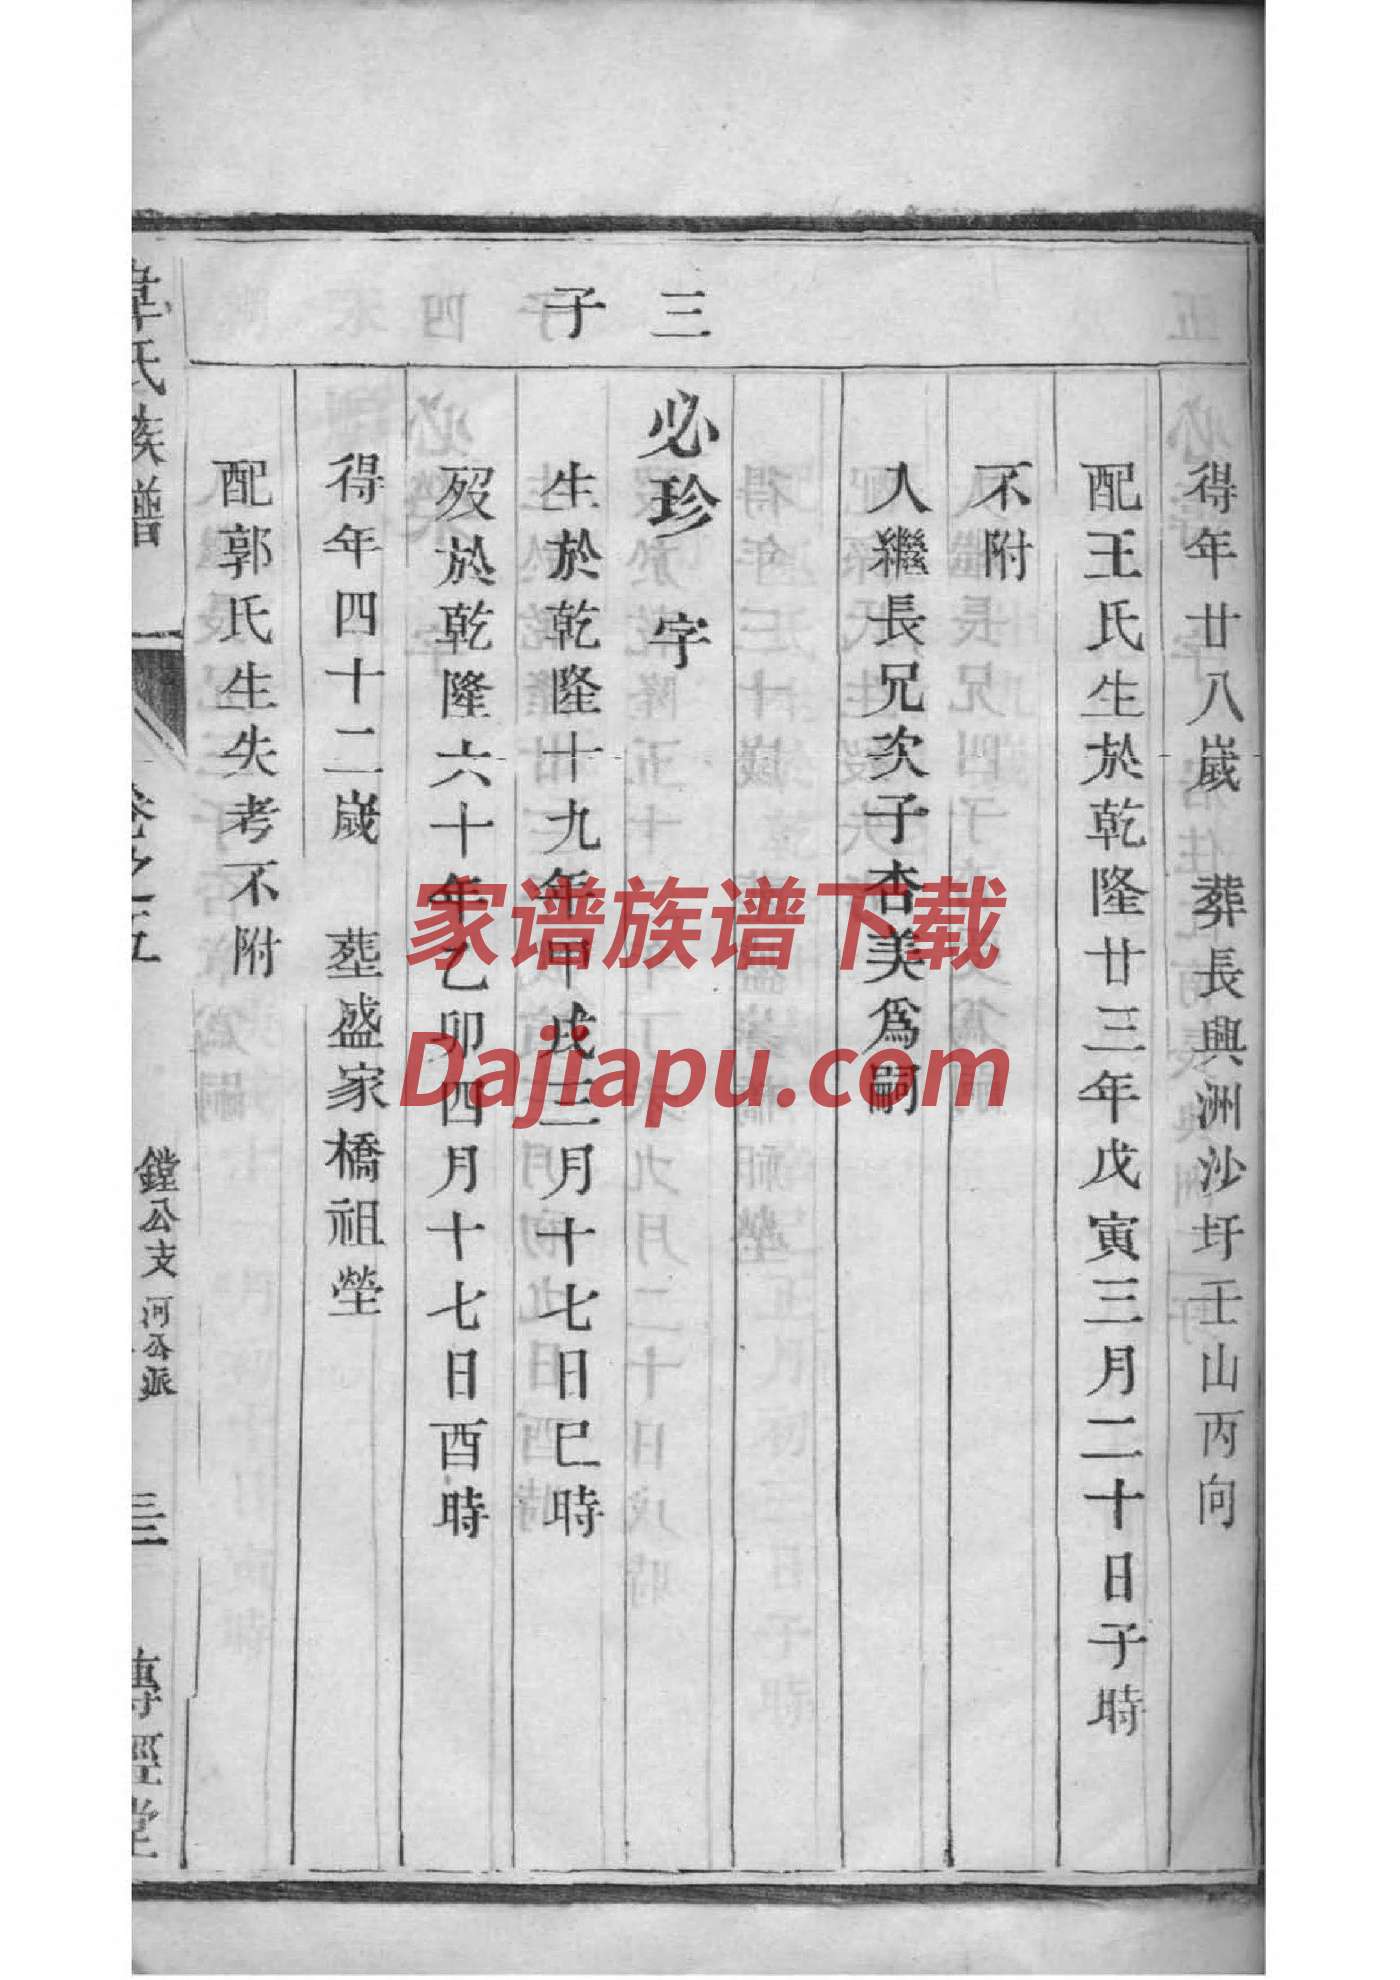 得年廿八歲　葬長興洲沙圩壬山丙向
配王氏生於乾隆廿三年戊寅三月二十日子時
不附
人繼長兄次子杏美爲嗣
三子
必珍　字
生於乾隆十九年甲戌三月十七日巳時
歿於乾隆六十年乙卯四月十七日酉時
得年四十二歲　塟盛家橋祖塋
配郭氏生失考不附
韋氏族譜　卷之五　鏜公支 河公派　三　傳經堂
家谱族谱下载
Dajiapu.com